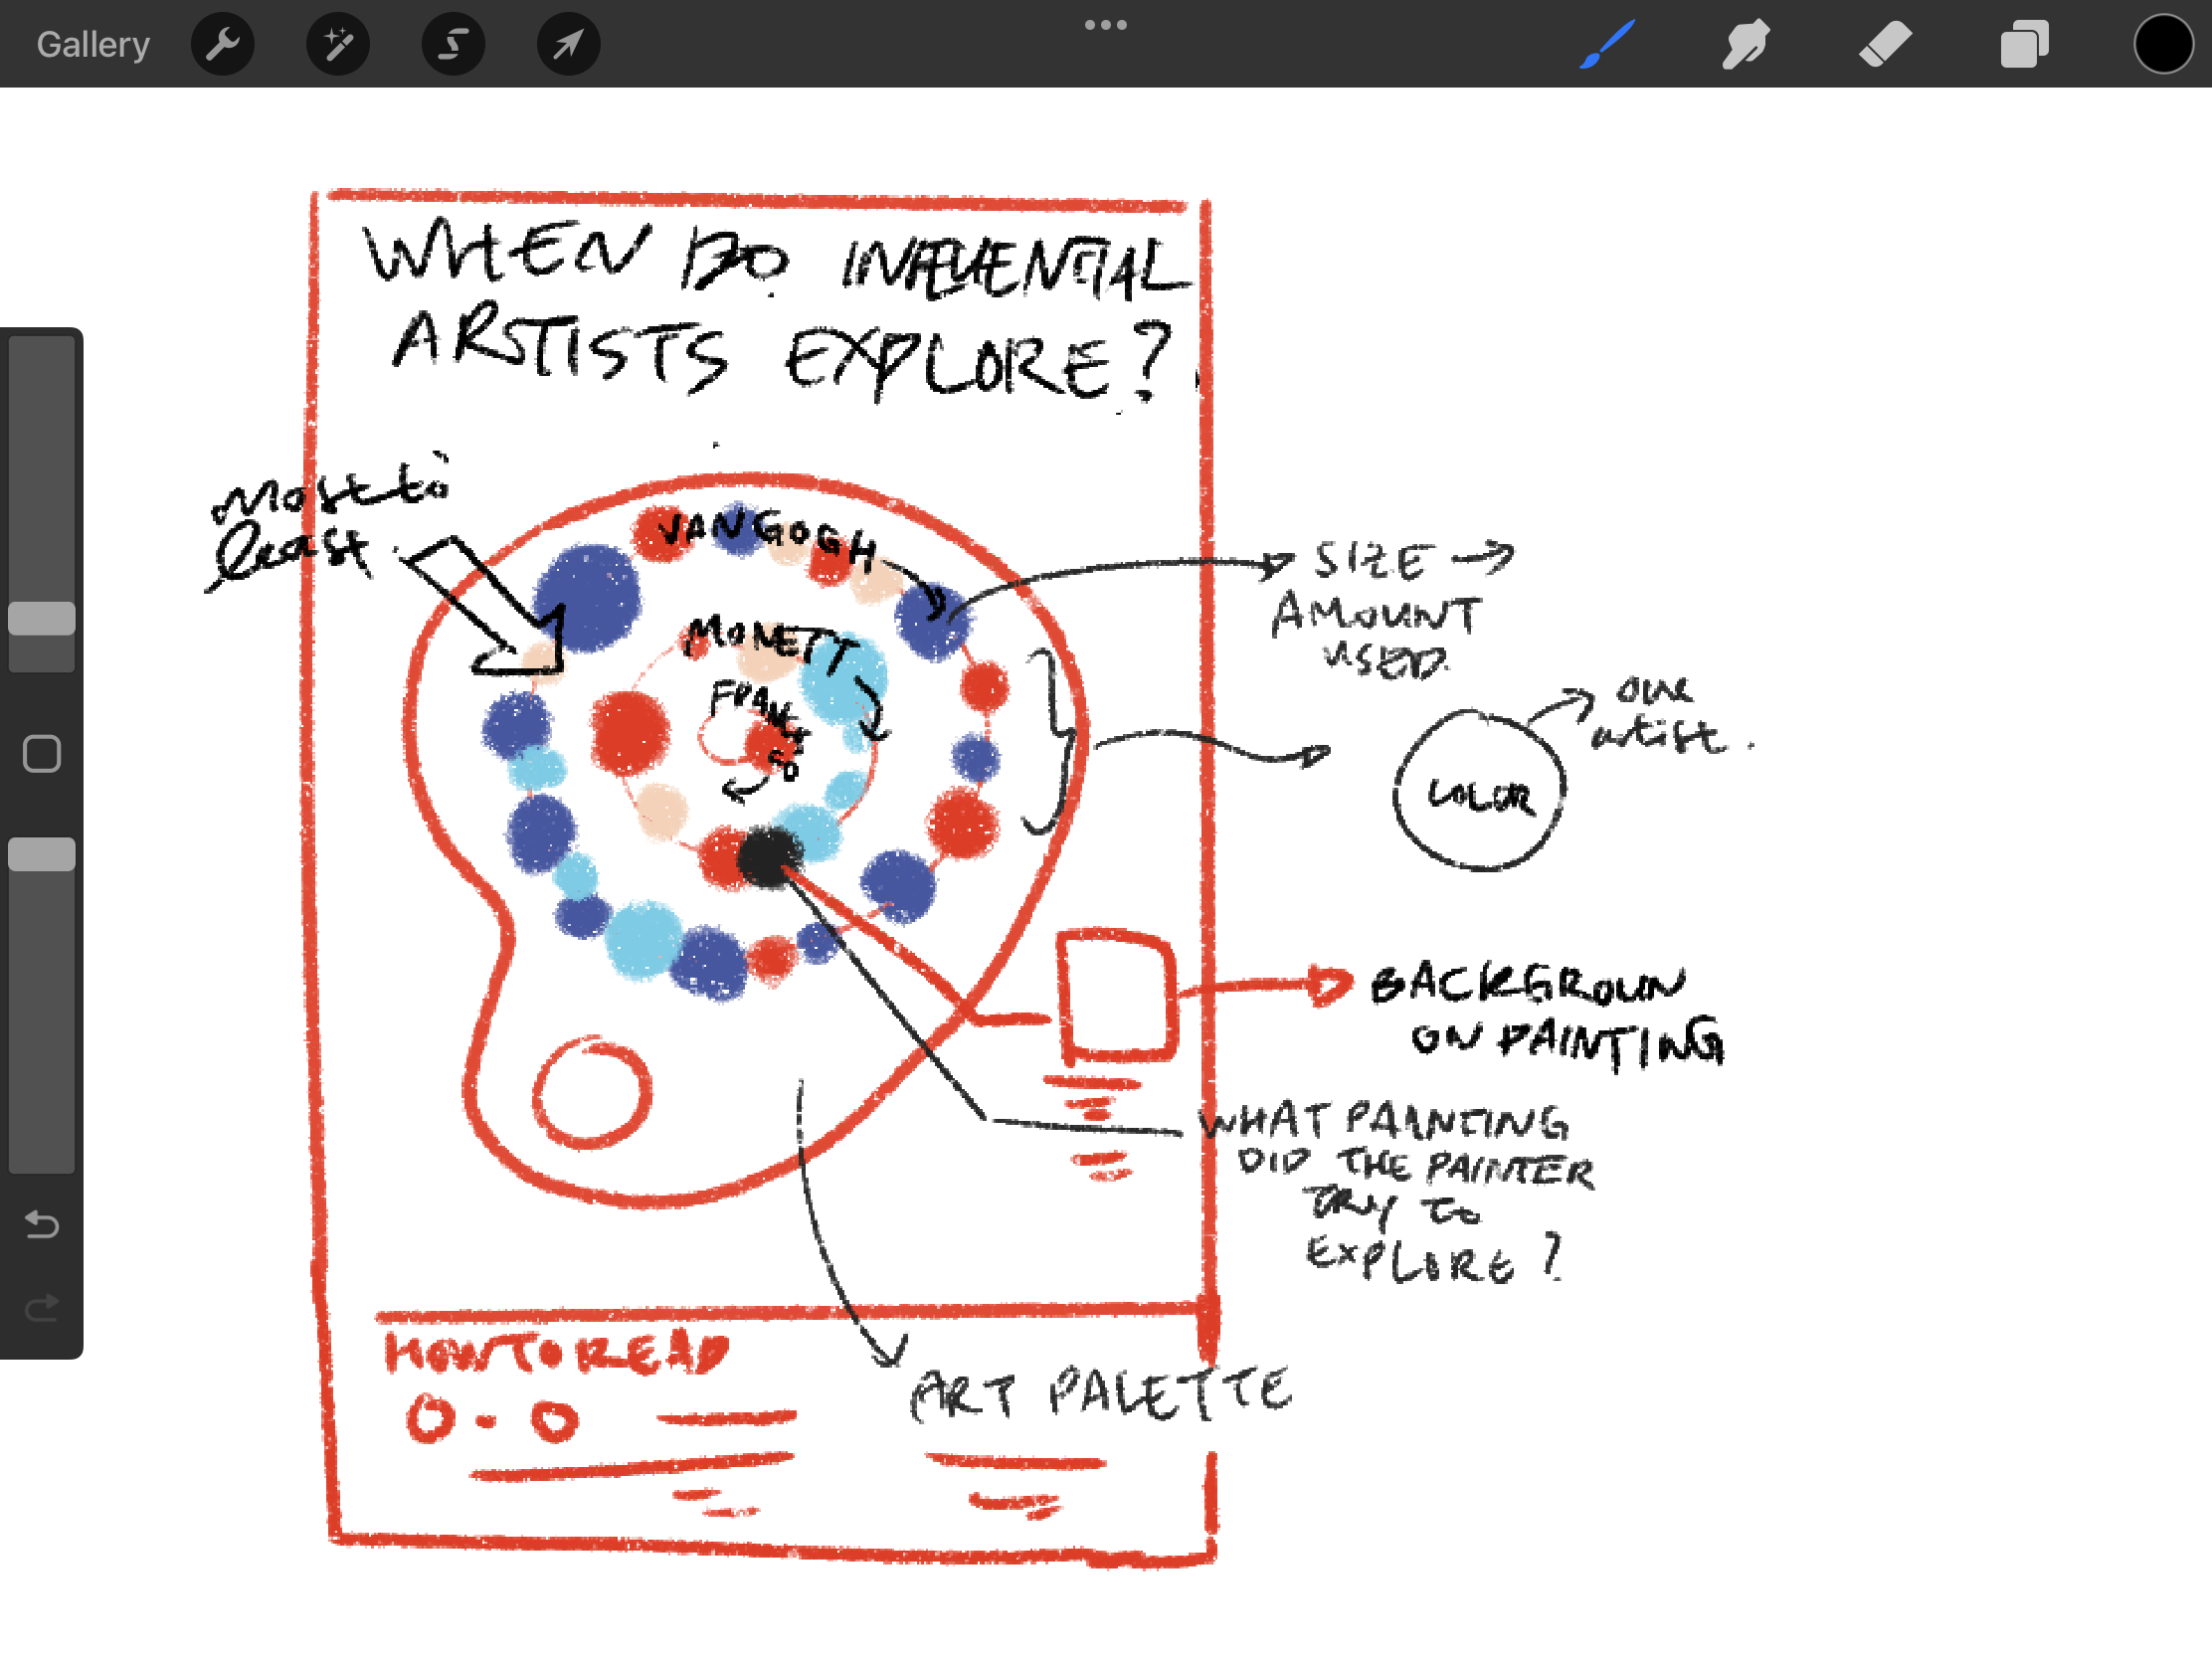 Gallery
WHEN DO INFLUENTIAL
ARTISTS EXPLORE?
Most to
least.
VANGOGH
MONETT
SIZE →
AMOUNT
USED.
one
artist.
COLOR
BACKGROUN
ON PAINTING
WHAT PAINTING
DID THE PAINTER
TRY TO
EXPLORE?
HOW TO READ
ART PALETTE